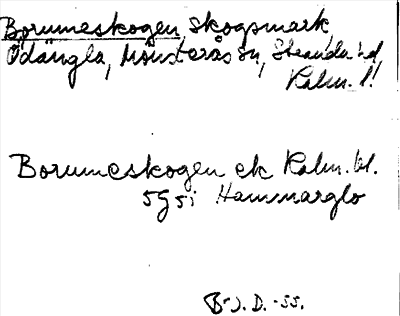 Borumeskogen, skogsmark,
Ödängla, Mönsterås sn, Stranda hd,
Kalm. l.
Borumeskogen ek Kalm. bl.
5g5i Hammarglo
B-J. D. -55.